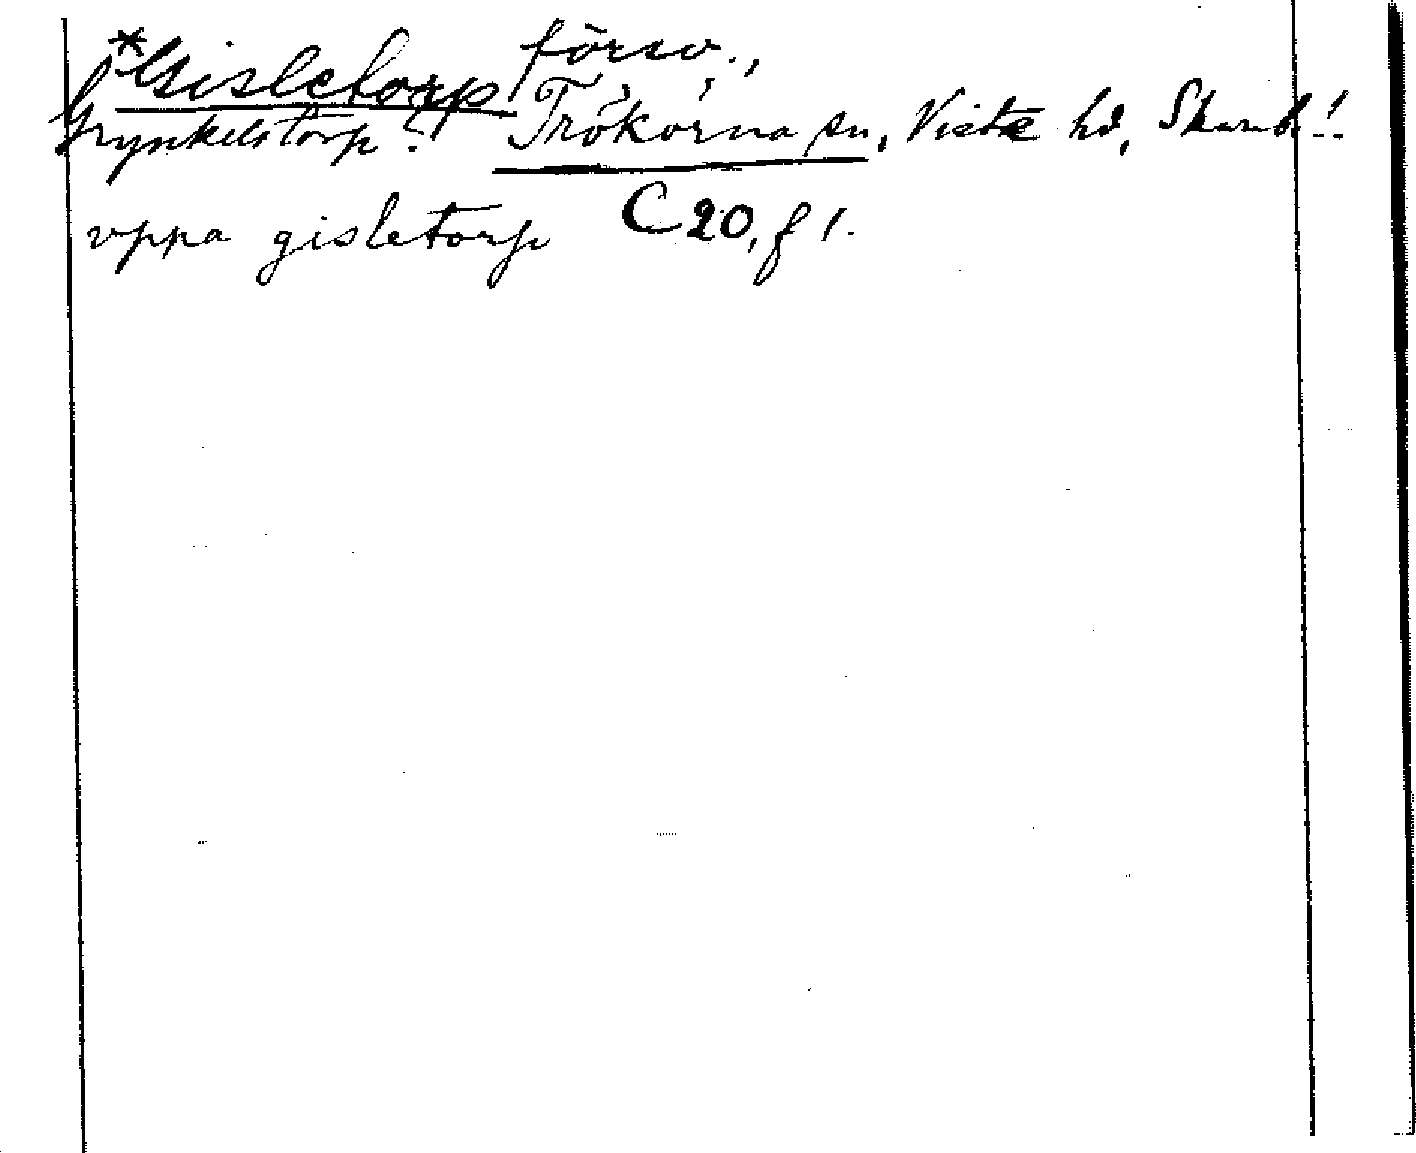 *Gisletorp försv.,
Grynkelstorp? Trökörna sn, Viste hd, Skarab.!
vppa gisletorp C 20, f 1.